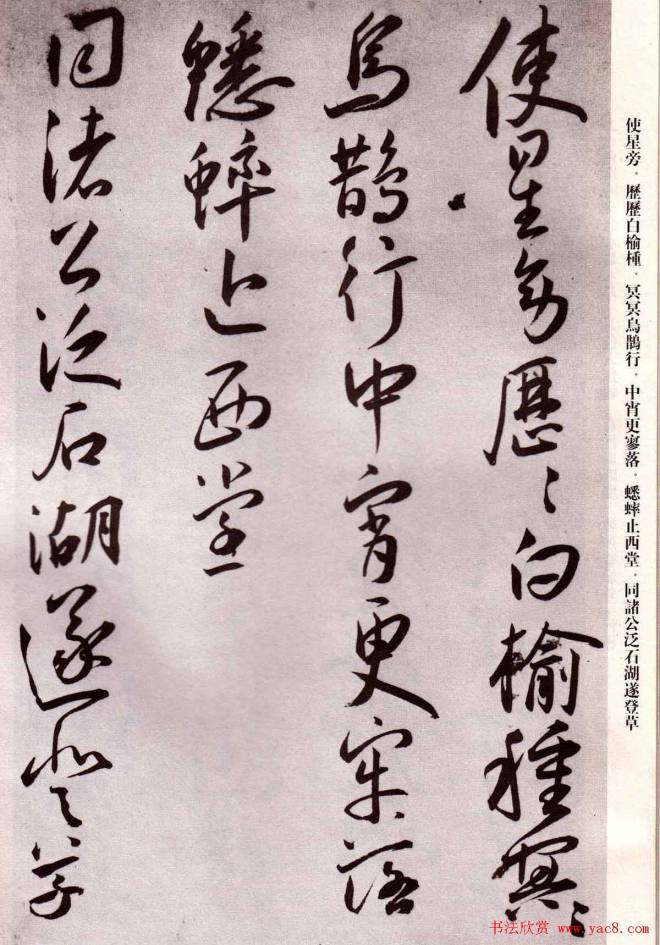 使星旁．歷歷白榆種．冥冥烏鵲行．中宵更寥落．蟋蟀止西堂．同諸公泛石湖遂登草
使星旁歷〻白榆種冥〻
烏鵲行中宵更牢落
蟋蟀止西堂
同諸公泛石湖遂登草
书法欣赏 www.yac8.com